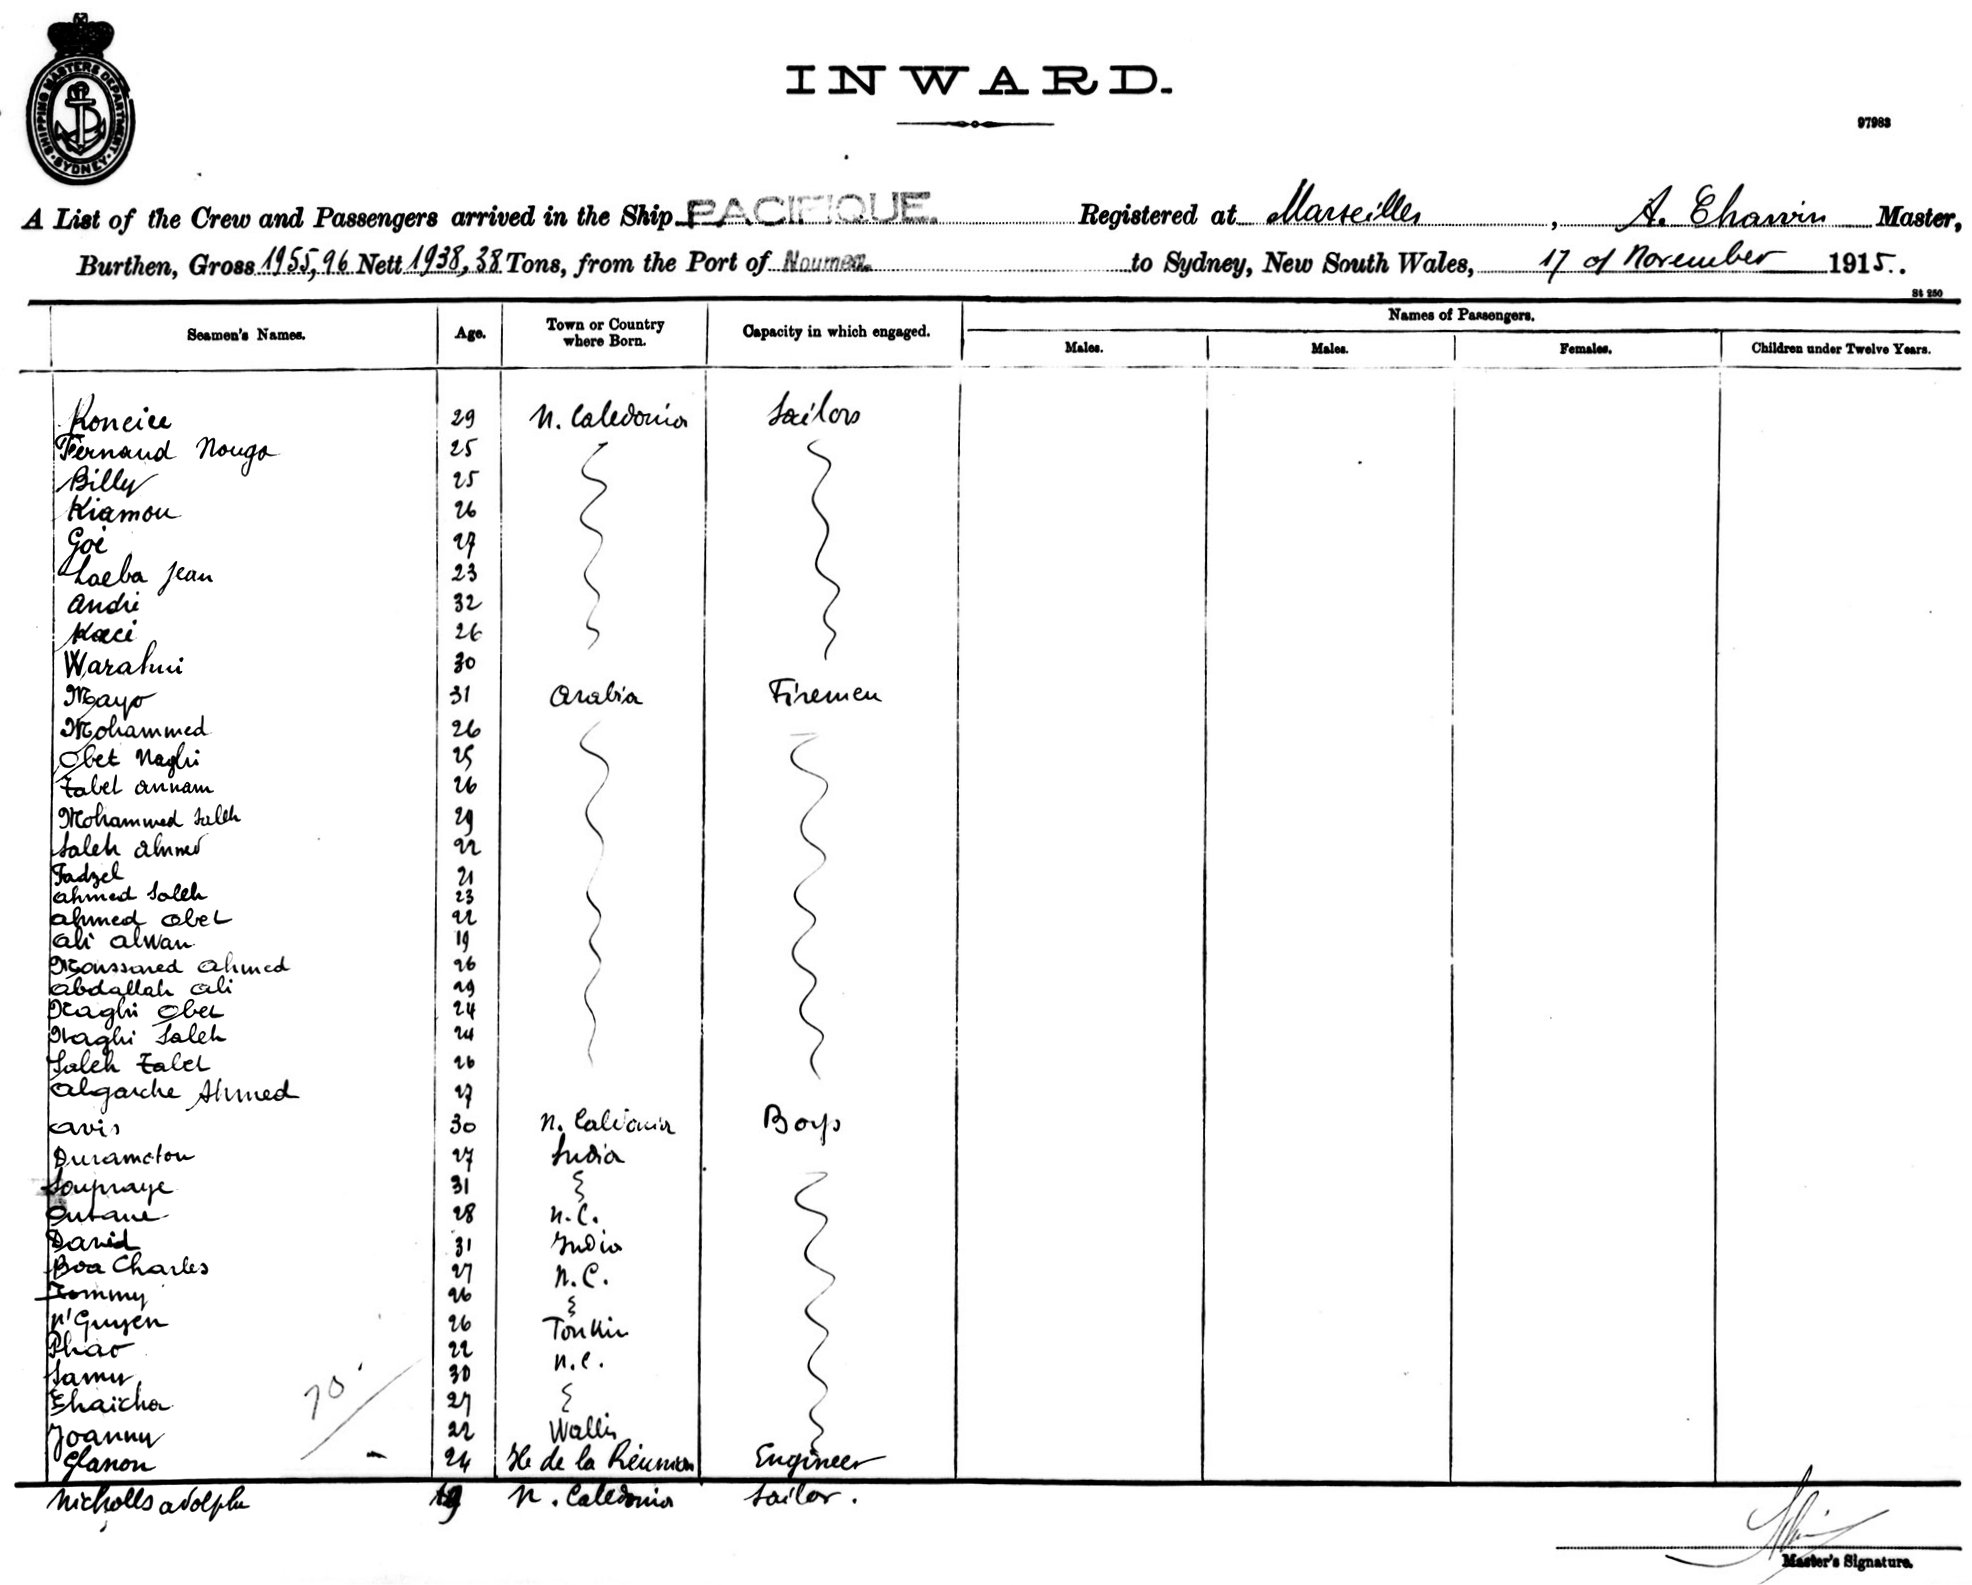 SHIPPING MASTERS DEPARTMENT
SYDNEY
INWARD.
97983
A List of the Crew and Passengers arrived in the Ship PACIFIQUE. Registered at Marseilles, A. Chauvin Master,
Burthen, Gross 1955,96 Nett 1938,38 Tons, from the Port of Noumea. to Sydney, New South Wales, 17 of November 1915.
St 250
Seamen's Names. Age. Town or Country where Born. Capacity in which engaged. Names of Passengers.
Males. Males. Females. Children under Twelve Years.
Koneice 29 N. Caledonia Sailors
Fernand Nouga 25
Billy 25
Kiamou 26
Goé 27
Laeba Jean 23
André 32
Kaci 26
30
Mayo 31 Arabia Firemen
Mohammed 26
Obet Naghi 25
Tabet Annam 26
Mohammed Saleh 29
Saleh Ahmed 22
Fadzel 21
Ahmed Saleh 23
Ahmed Obet 22
Ali Alwan 19
Moussared Ahmed 26
Abdallah Ali 29
Naghi Obet 24
Naghi Saleh 24
Saleh Tabet 26
Algarche Ahmed 27
Avis 30 N. Caledonia Boys
Duramoton 27 India
Soupraye 31
Outane 28 N.C.
David 31 India
Boa Charles 27 N.C.
Tommy 26
N'Guyen 26 Tonkin
Phao 22 N.C.
Samy 30
27
Joanny 22 Wallis
Glanon 24 Ile de la Réunion Engineer
70
Nicholls Adolphe N. Caledonia Sailor.
Master's Signature.